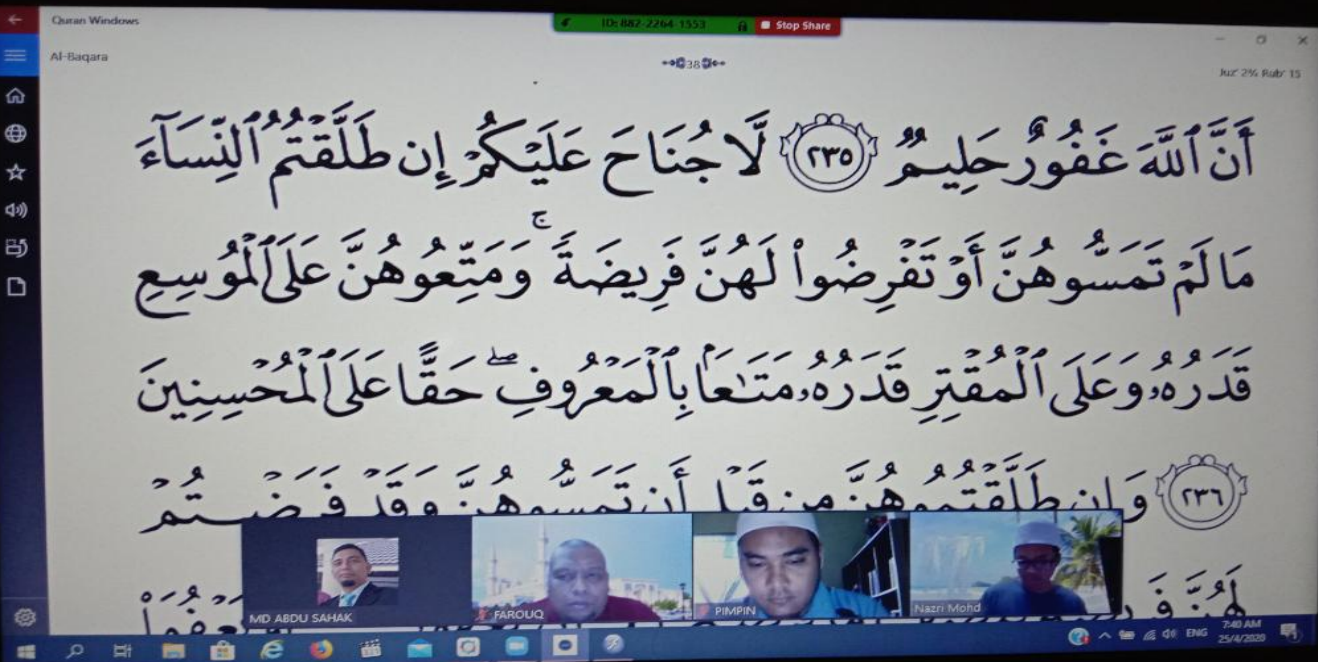 Quran Windows
ID: 882-2264-1553
Stop Share
Al-Baqara
38
Juz' 2% Rub' 15
أَنَّ ٱللَّهَ غَفُورٌ حَلِيمٌ ٢٣٥ لَّا جُنَاحَ عَلَيْكُمْ إِن طَلَّقْتُمُ ٱلنِّسَآءَ
مَا لَمْ تَمَسُّوهُنَّ أَوْ تَفْرِضُوا۟ لَهُنَّ فَرِيضَةً ۚ وَمَتِّعُوهُنَّ عَلَى ٱلْمُوسِعِ
قَدَرُهُۥ وَعَلَى ٱلْمُقْتِرِ قَدَرُهُۥ مَتَـٰعًۢا بِٱلْمَعْرُوفِ ۖ حَقًّا عَلَى ٱلْمُحْسِنِينَ
٢٣٦ وَإِن طَلَّقْتُمُوهُنَّ مِن قَبْلِ أَن تَمَسُّوهُنَّ وَقَدْ فَرَضْتُمْ
لَهُنَّ
MD ABDU SAHAK
FAROUQ
PIMPIN
Nazri Mohd
ENG
7:40 AM
25/4/2020